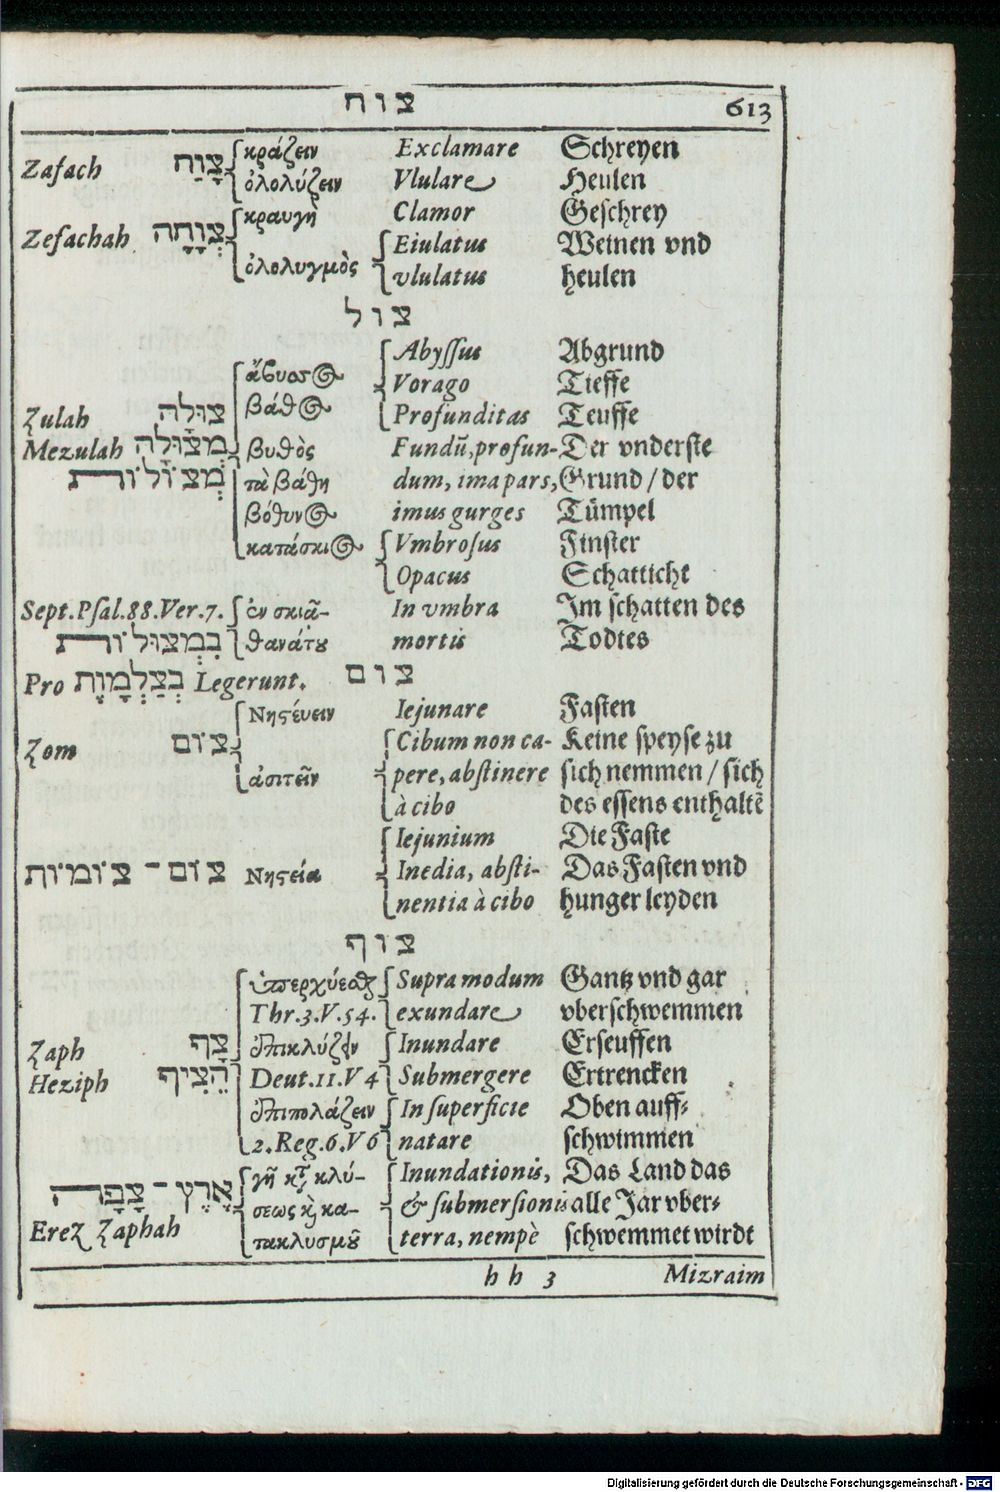 צוח 613
Zafach צָוַח κράζειν Exclamare Schreyen
ὀλολύζειν Vlulare Heulen
κραυγὴ Clamor Geschrey
Zefachah צְוָחָה Eiulatus Weinen vnd
ὀλολυγμὸς vlulatus heulen
צול
Abyssus Abgrund
ἄβυσσος Vorago Tieffe
Zulah צוּלָה βάθος Profunditas Teuffe
Mezulah מְצוּלָה βυθὸς Fundū, profun- Der vnderste
מְצוֹלוֹת τὰ βάθη dum, ima pars, Grund / der
βόθυνος imus gurges Tümpel
κατάσκιος Vmbrosus Finster
Opacus Schatticht
Sept. Psal. 88. Ver. 7. ἐν σκιᾶ- In vmbra Im schatten des
בִּמְצוּלוֹת θανάτου mortis Todtes
Pro בְּצַלְמָוֶת Legerunt. צום
Νηστεύειν Iejunare Fasten
Zom צוֹם Cibum non ca- Keine speyse zu
ἀσιτεῖν pere, abstinere sich nemmen / sich
à cibo des essens enthaltē
Iejunium Die Faste
צוֹם - צוֹמוֹת Νηστεία Inedia, absti- Das Fasten vnd
nentia à cibo hunger leyden
צוף
ὑπερχύεσθαι Supra modum Gantz vnd gar
Thr. 3. V. 54. exundare vberschwemmen
Zaph צָף ἐπικλύζειν Inundare Erseuffen
Heziph הֵצִיף Deut. 11. V 4 Submergere Ertrencken
ἐπιπολάζειν In superficie Oben auff-
2. Reg. 6. V 6 natare schwimmen
γῆ κτ̃ κλύ- Inundationis, Das Land das
אֶרֶץ - צָפָה σεως καὶ κα- & submersionis alle Jar vber-
Erez Zaphah τακλυσμοῦ terra, nempè schwemmet wirdt
hh 3 Mizraim
Digitalisierung gefördert durch die Deutsche Forschungsgemeinschaft - DFG